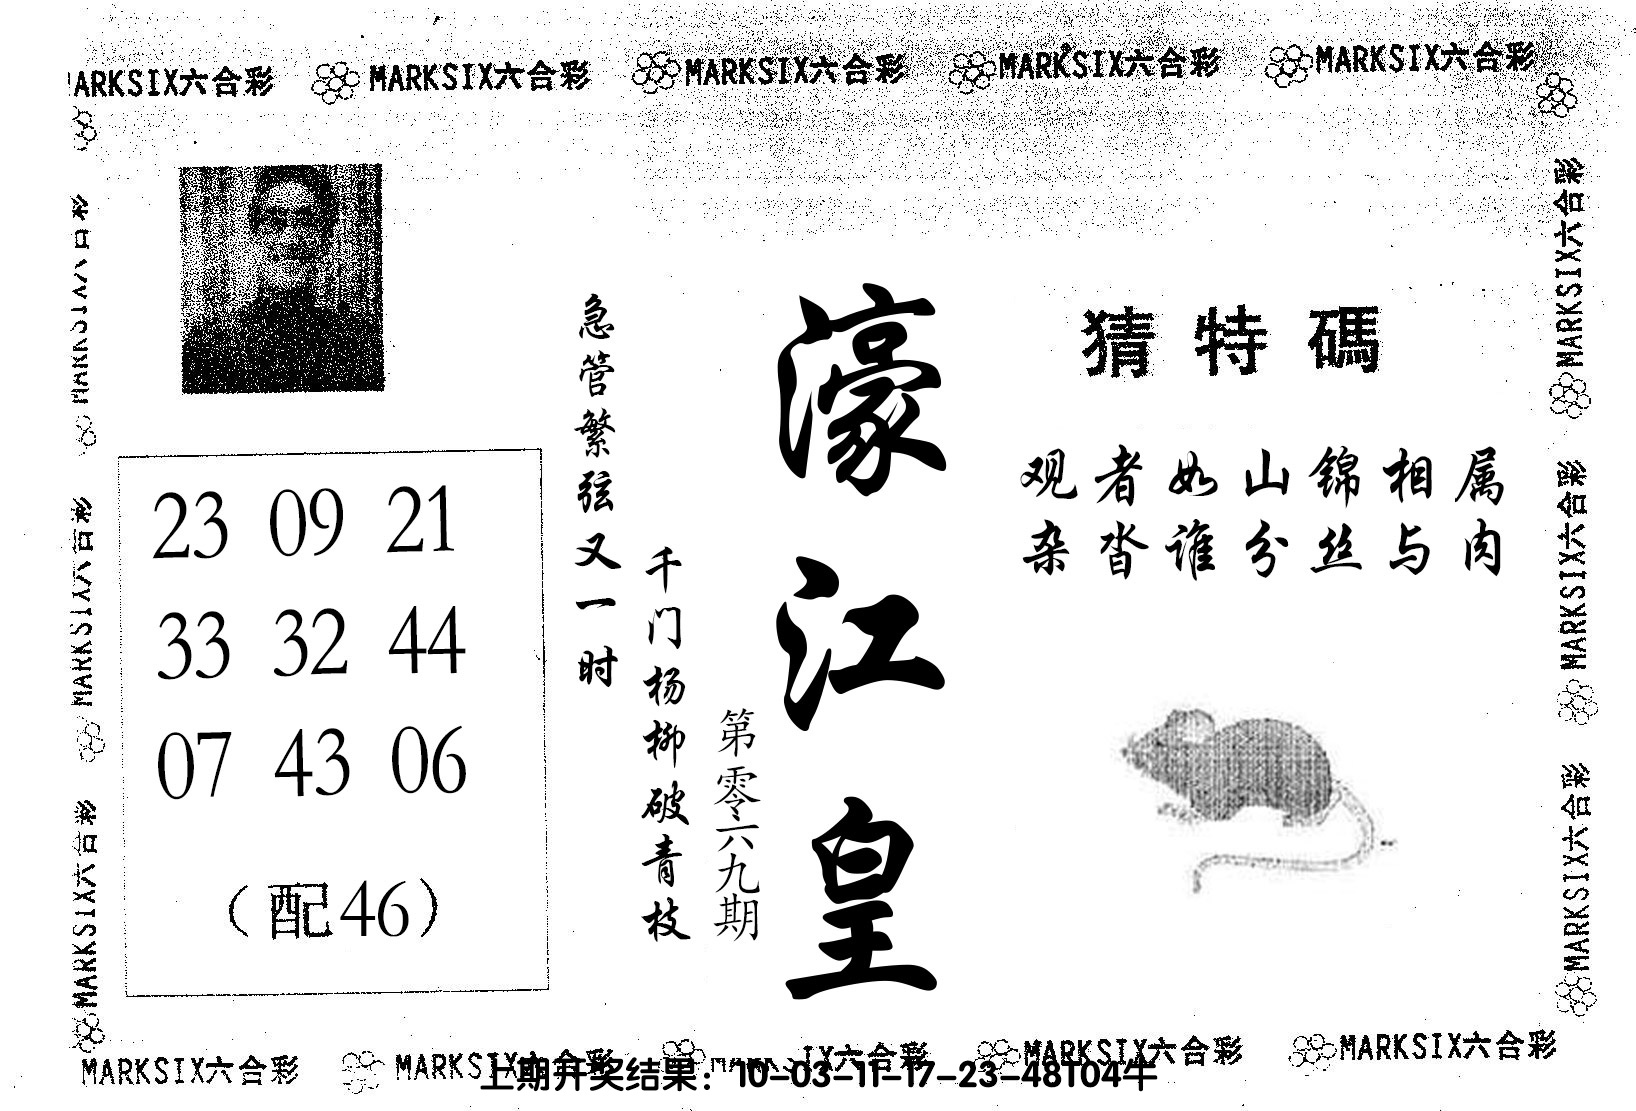 MARKSIX六合彩 MARKSIX六合彩 MARKSIX六合彩 MARKSIX六合彩
MARKSIX六合彩
MARKSIX六合彩
MARKSIX六合彩
MARKSIX六合彩
MARKSIX六合彩
MARKSIX六合彩
猜特碼
观者如山锦相属
杂沓谁分丝与肉
濠江皇
第零六九期
千门杨柳破青枝
急管繁弦又一时
23 09 21
33 32 44
07 43 06
(配46)
MARKSIX六合彩 MARKSIX六合彩 MARKSIX六合彩 MARKSIX六合彩
上期开奖结果：10-03-11-17-23-48T04牛